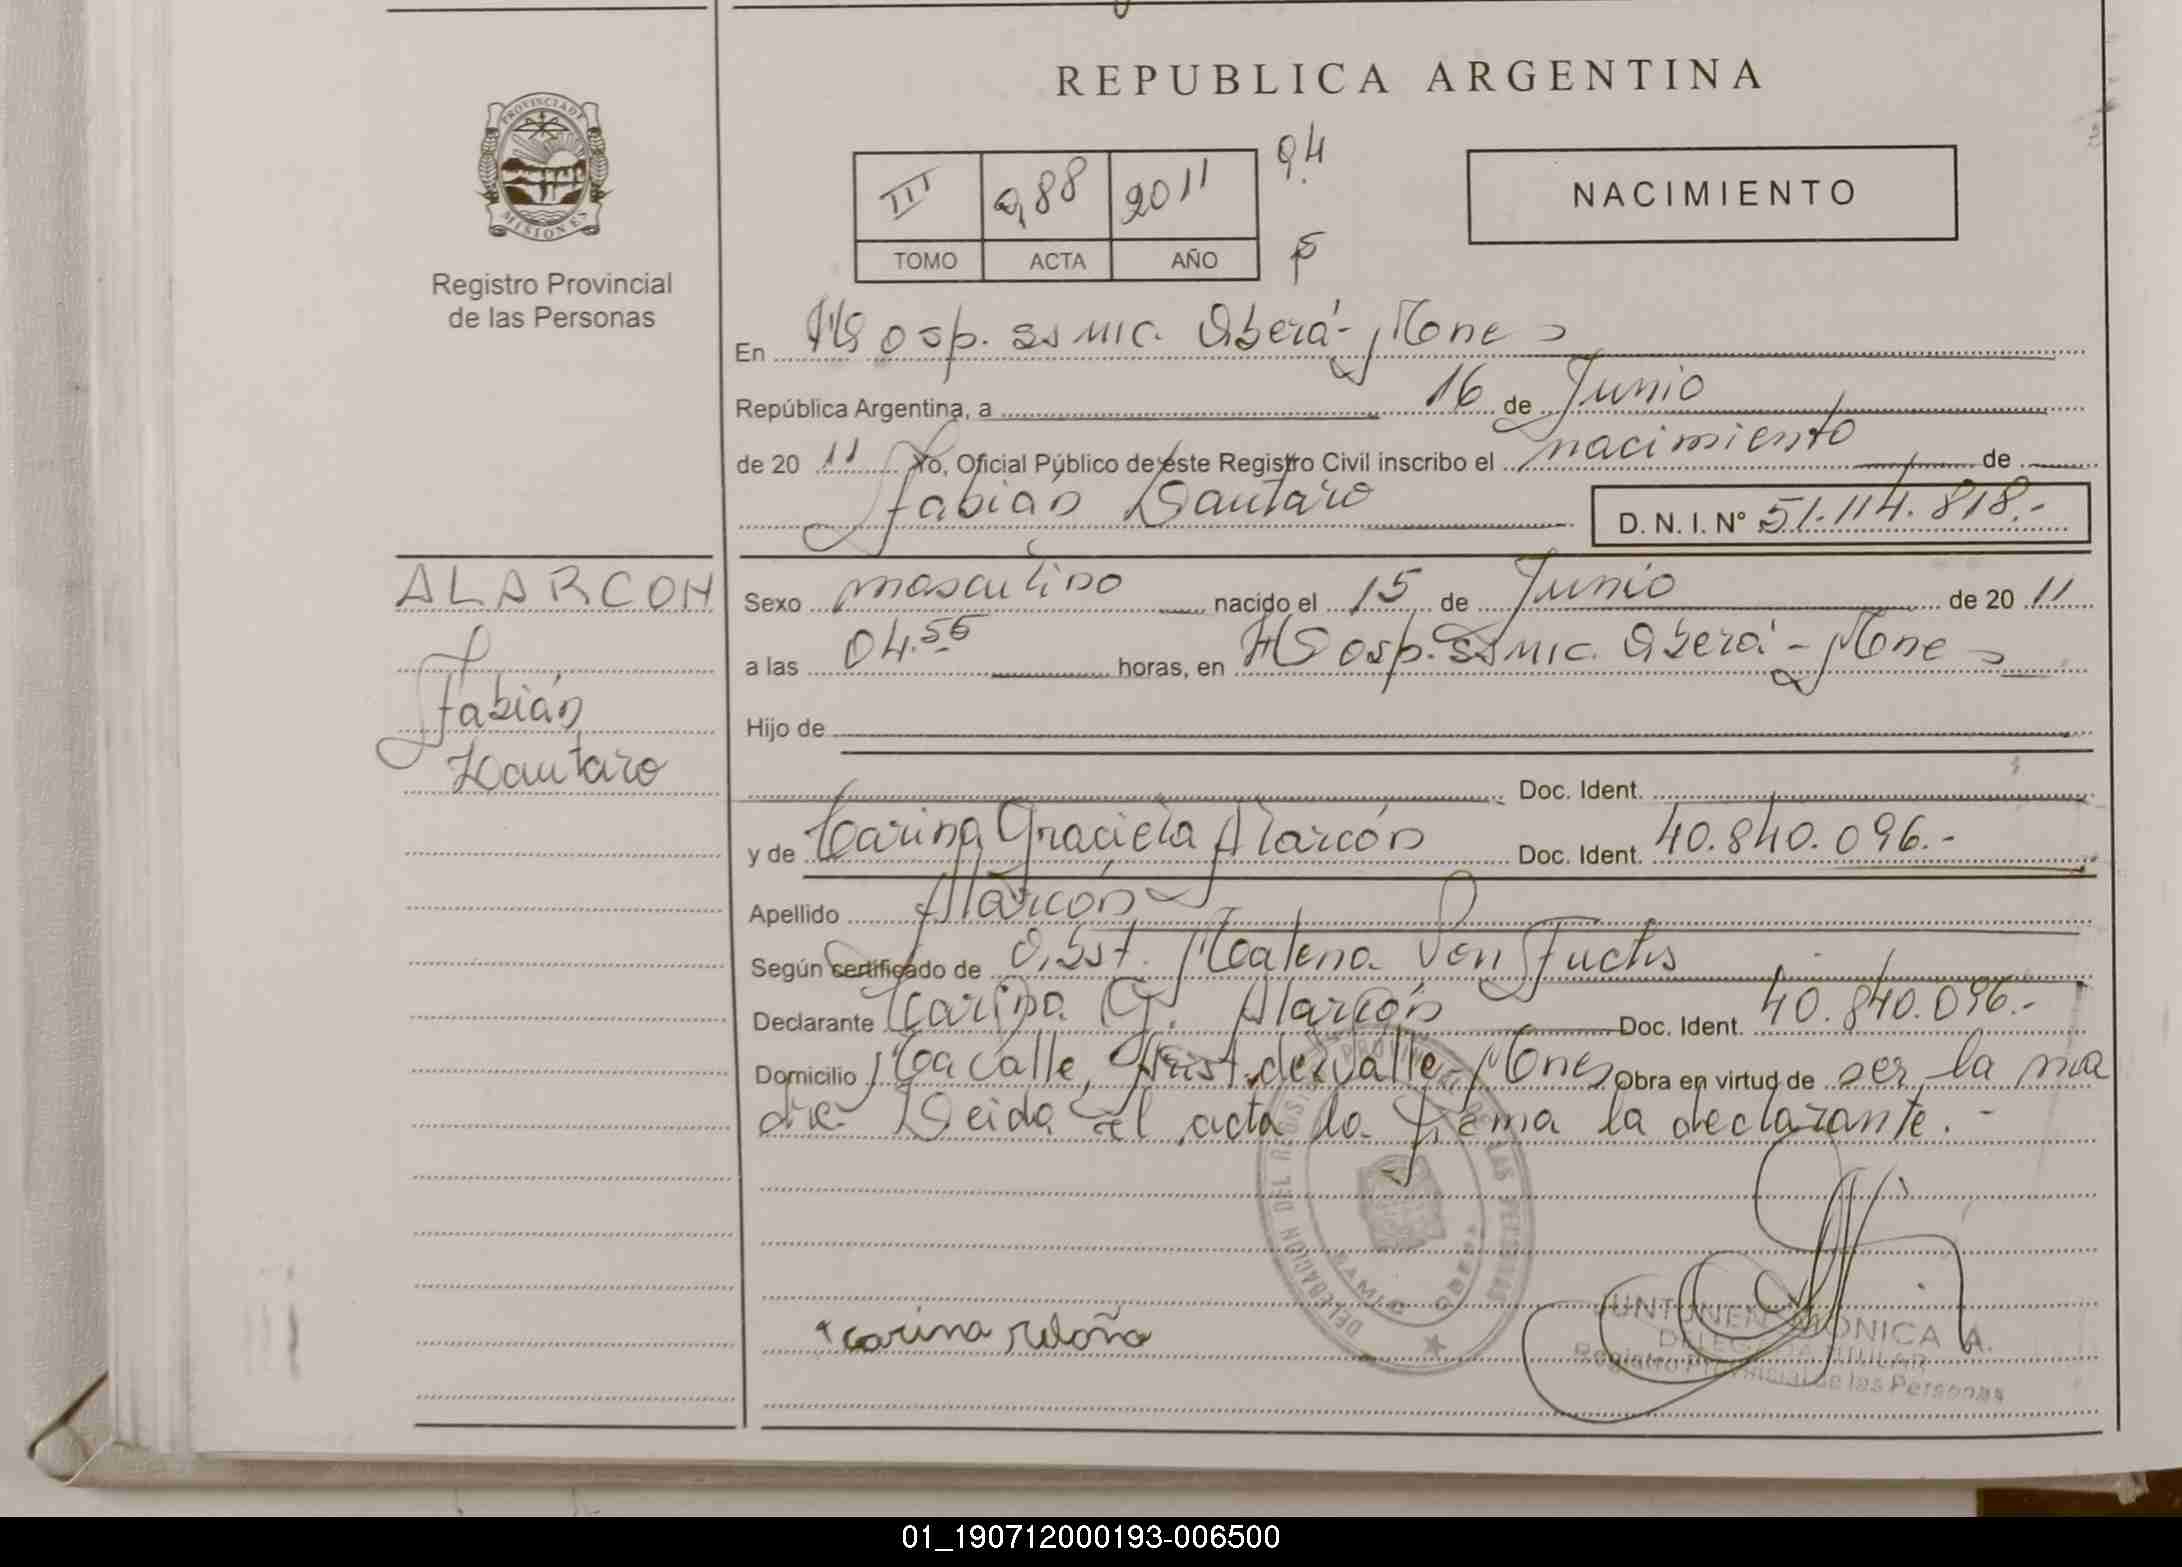 REPUBLICA ARGENTINA
PROVINCIA DE
MISIONES
Registro Provincial
de las Personas
III 288 2011
TOMO ACTA AÑO
94
NACIMIENTO
En Hosp. ss mic. Oberá - Mones
República Argentina, a 16 de Junio
de 20 11 Yo, Oficial Público de este Registro Civil inscribo el nacimiento de
Fabián Lautaro D. N. I. N° 51.114.818.-
ALARCON
Fabián
Lautaro
Sexo masculino nacido el 15 de Junio de 20 11
a las 04.55 horas, en Hosp. ss mic. Oberá - Mones
Hijo de
Doc. Ident.
y de Karina Graciela Alarcón Doc. Ident. 40.840.096.-
Apellido Alarcón
Según certificado de Obst. Malena Von Fuchs
Declarante Karina G. Alarcón Doc. Ident. 40.840.096.-
Domicilio Arist. del Valle - Mones Obra en virtud de ser la ma
dre Leida el acta la firma la declarante.-
DELEGACION DEL REGISTRO PROVINCIAL DE LAS PERSONAS
OBERA
karina
JUNTUNEN MONICA A.
DELEGADA TITULAR
Registro Provincial de las Personas
01_190712000193-006500